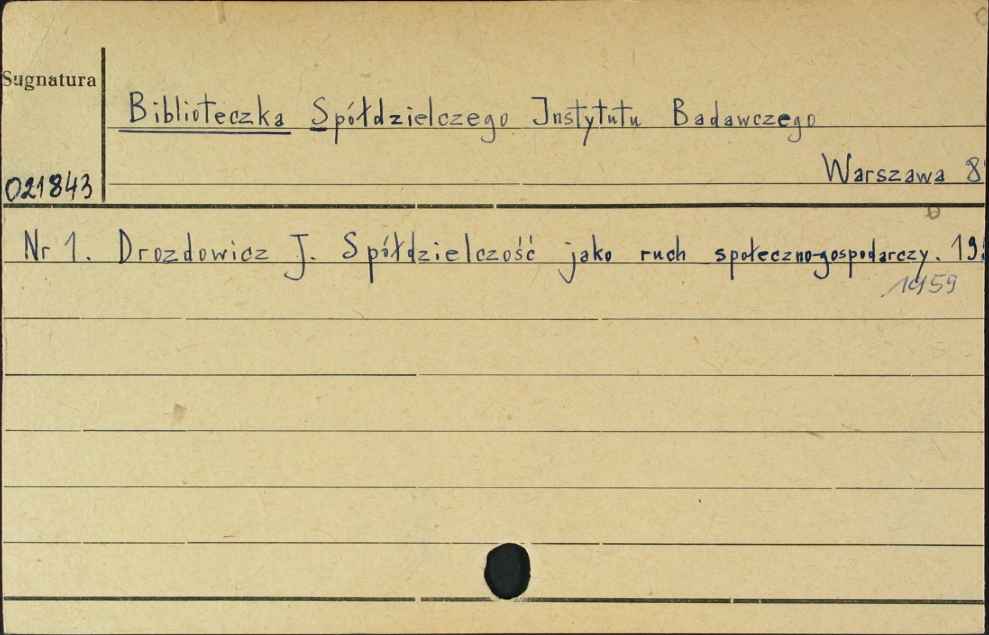 Sygnatura
Biblioteczka Spółdzielczego Instytutu Badawczego
Warszawa 8°
021843
Nr 1. Drozdowicz J. Spółdzielczość jako ruch społeczno-gospodarczy.
1959